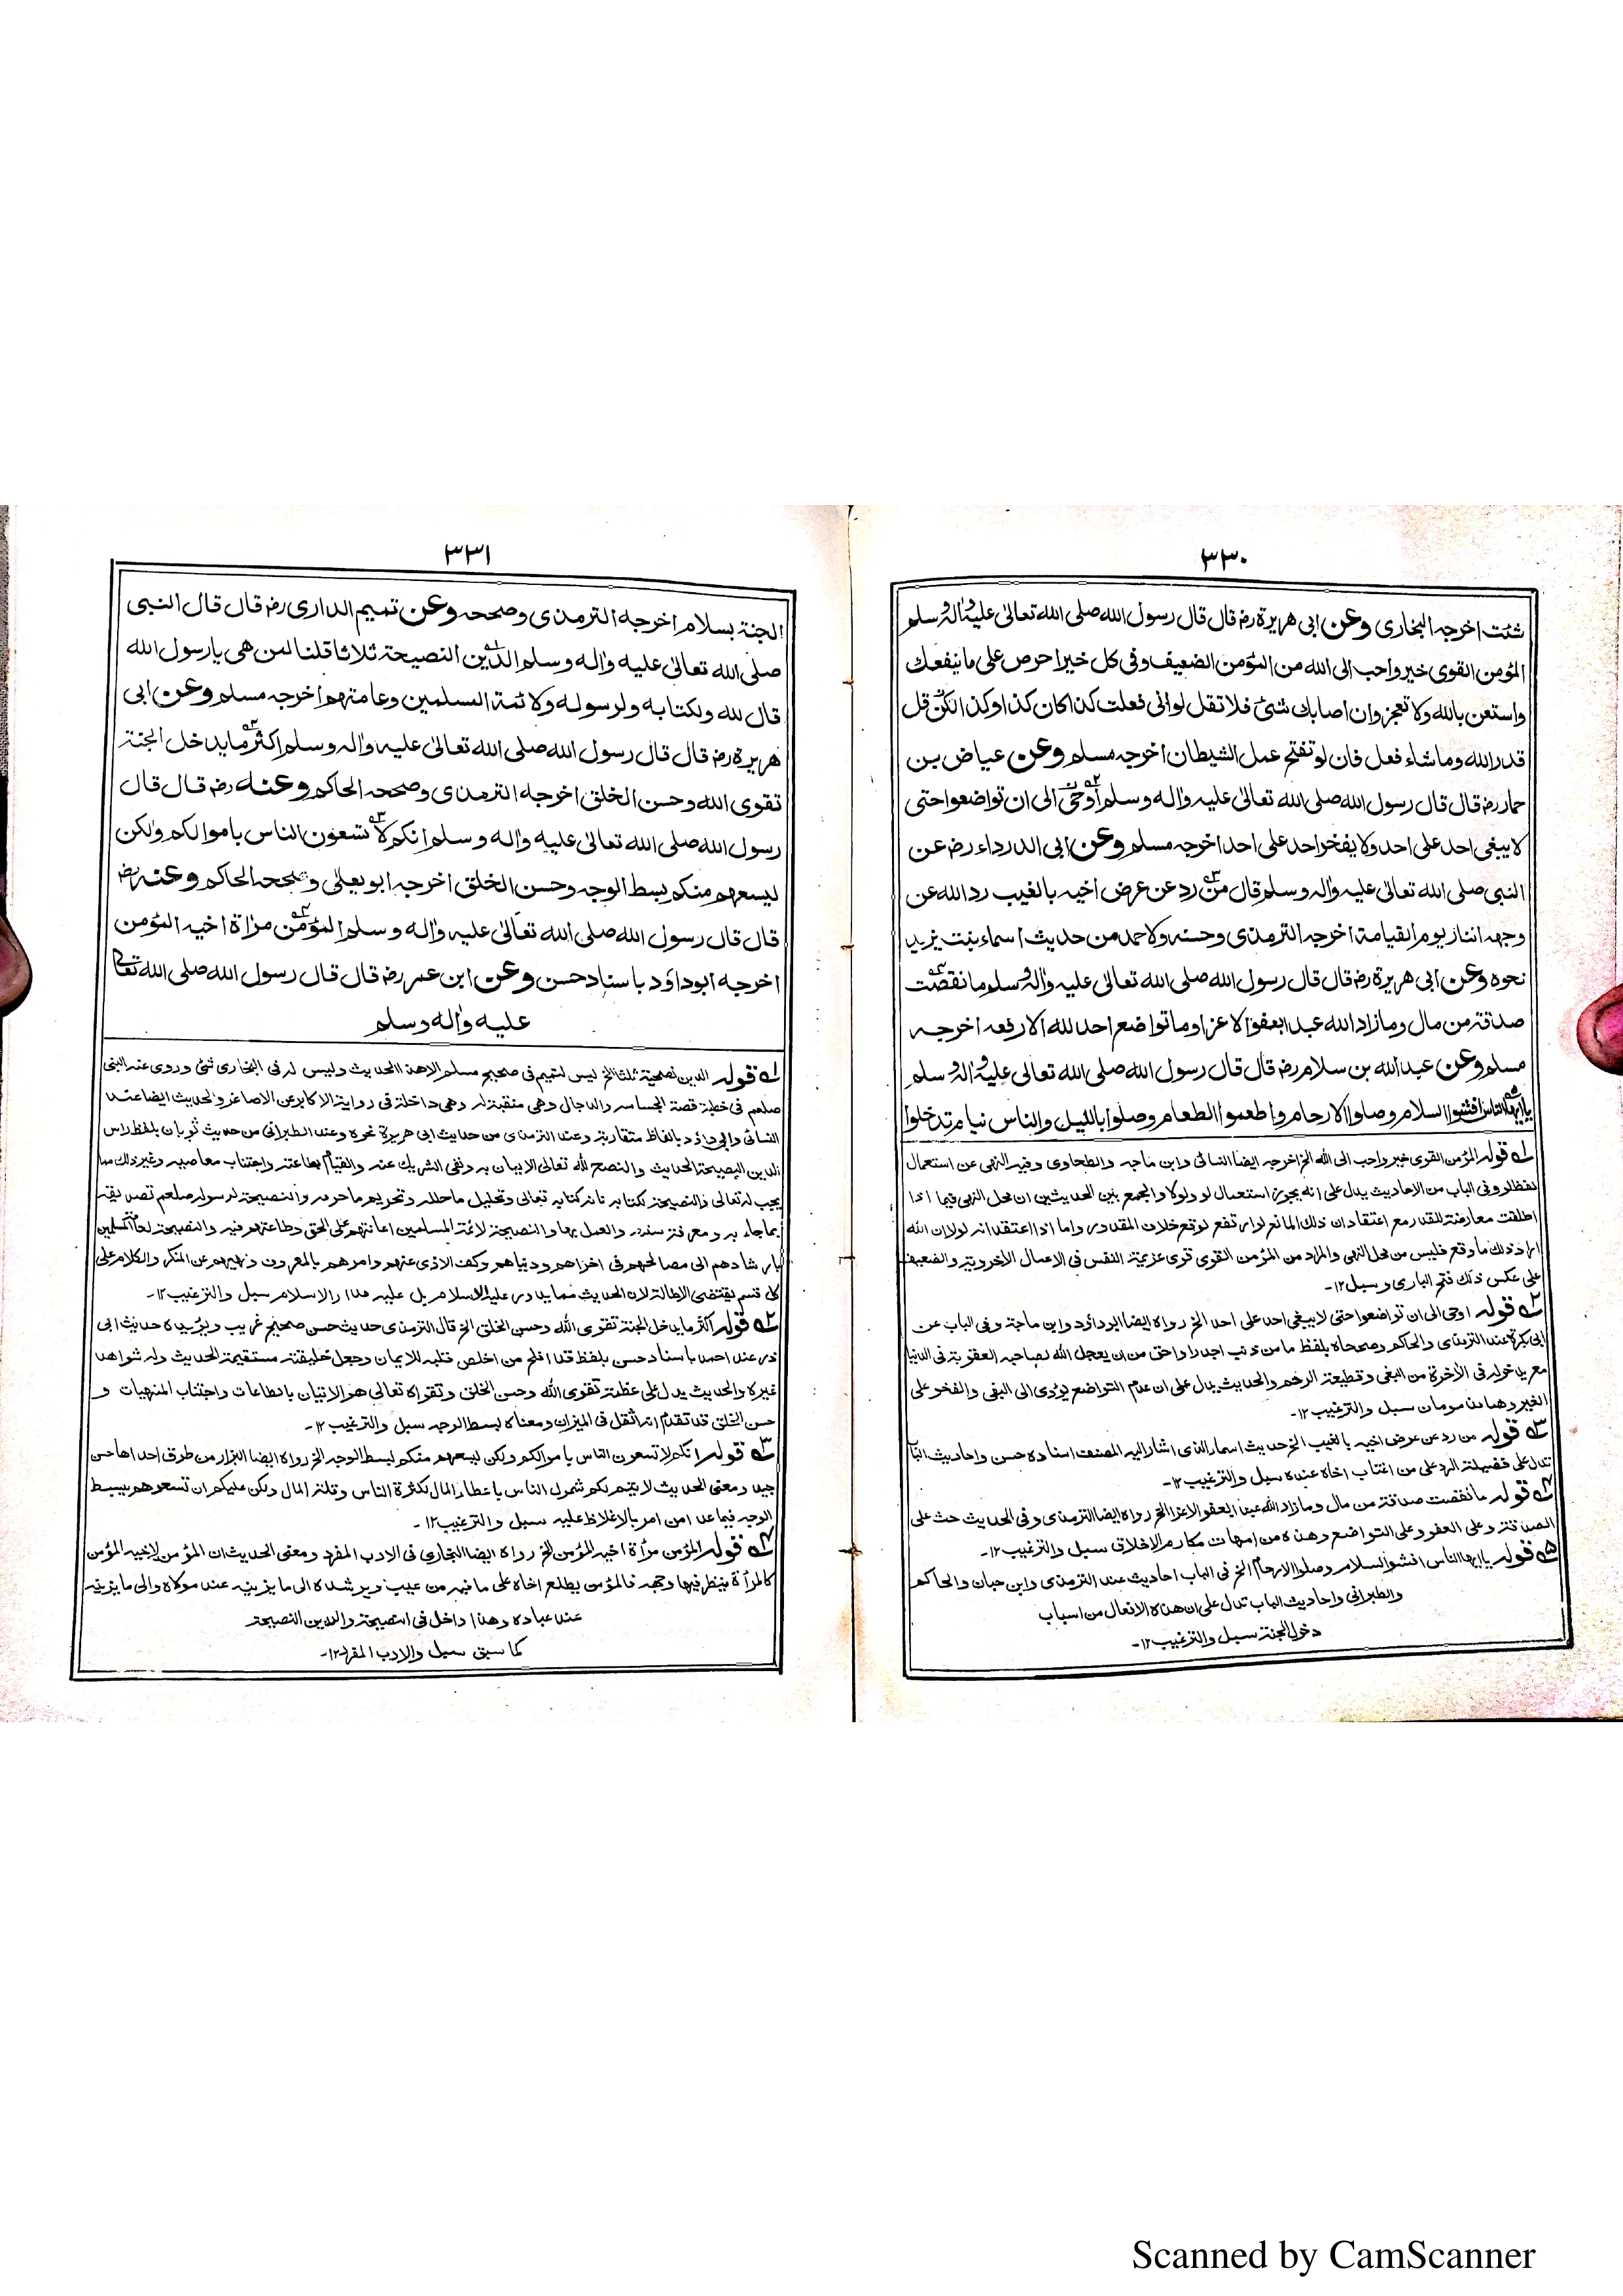 ٣٣٠
شئت اخرجه البخاری وعن ابی هریرة رضـ قال قال رسول الله صلی الله تعالیٰ علیه واٰله وسلم
المؤمن القوی خیر واحب الی الله من المؤمن الضعیف وفی کل خیر احرص علی ما ینفعك
واستعن بالله ولا تعجز وان اصابك شئ فلا تقل لو انی فعلت کذا کان کذا وکذا ولکن قل
قدر الله وما شاء فعل فان لو تفتح عمل الشیطان اخرجه مسلم وعن عیاض بن
حمار رضـ قال قال رسول الله صلی الله تعالیٰ علیه واٰله وسلم اوحی الی ان تواضعوا حتی
لا یبغی احد علی احد ولا یفخر احد علی احد اخرجه مسلم وعن ابی الدرداء رضـ عن
النبی صلی الله تعالیٰ علیه واٰله وسلم قال من رد عن عرض اخیه بالغیب رد الله عن
وجهه النار یوم القیامة اخرجه الترمذی وحسنه ولاحمد من حدیث اسماء بنت یزید
نحوه وعن ابی هریرة رضـ قال قال رسول الله صلی الله تعالیٰ علیه واٰله وسلم ما نقصت
صدقة من مال وما زاد الله عبدا بعفو الا عزا وما تواضع احد لله الا رفعه اخرجه
مسلم وعن عبد الله بن سلام رضـ قال قال رسول الله صلی الله تعالیٰ علیه واٰله وسلم
یا ایها الناس افشوا السلام وصلوا الارحام واطعموا الطعام وصلوا باللیل والناس نیام تدخلوا
١ قوله المؤمن القوی خیر واحب الی الله الخ اخرجه ایضا النسائی وابن ماجه والطحاوی وفیه النهی عن استعمال
لفظ لو وفی الباب من الاحادیث یدل علی انه یجوز استعمال لو ولولا والجمع بین الحدیثین ان محل النهی فیما اذا
اطلقت معارضة للقدر مع اعتقاد ان ذلك المانع لو ارتفع لوقع خلاف المقدور واما اذا اعتقد انه لولا ان الله
اراد ذلك ما وقع فلیس من محل النهی والمراد من المؤمن القوی قوی عزیمة النفس فی الاعمال الاخرویة والضعیف
علی عکس ذلك فتح الباری وسبل ١٢-
٢ قوله اوحی الی ان تواضعوا حتی لا یبغی احد علی احد الخ رواه ایضا ابو داؤد وابن ماجة وفی الباب عن
ابی بکرة عند الترمذی والحاکم وصححاه بلفظ ما من ذنب اجدر او احق من ان یعجل الله لصاحبه العقوبة فی الدنیا
مع یدخر له فی الاٰخرة من البغی وقطیعة الرحم والحدیث یدل علی ان عدم التواضع یؤدی الی البغی والفخر علی
الغیر وهما مذمومان سبل والترغیب ١٢-
٣ قوله من رد عن عرض اخیه بالغیب الخ حدیث اسماء الذی اشار الیه المصنف اسناده حسن واحادیث الباب
تدل علی فضیلة الرد علی من اغتاب اخاه عنده سبل والترغیب ١٢-
٤ قوله ما نقصت صدقة من مال وما زاد الله عبدا بعفو الا عزا الخ رواه ایضا الترمذی وفی الحدیث حث علی
الصدقة وعلی العفو وعلی التواضع وهذه من امهات مکارم الاخلاق سبل والترغیب ١٢-
٥ قوله یا ایها الناس افشوا السلام وصلوا الارحام الخ فی الباب احادیث عند الترمذی وابن حبان والحاکم
والطبرانی واحادیث الباب تدل علی ان هذه الافعال من اسباب
دخول الجنة سبل والترغیب ١٢-
٣٣١
الجنة بسلام اخرجه الترمذی وصححه وعن تمیم الداری رضـ قال قال النبی
صلی الله تعالیٰ علیه واٰله وسلم الدین النصیحة ثلاثا قلنا لمن هی یا رسول الله
قال لله ولکتابه ولرسوله ولائمة المسلمین وعامتهم اخرجه مسلم وعن ابی
هریرة رضـ قال قال رسول الله صلی الله تعالیٰ علیه واٰله وسلم اکثر ما یدخل الجنة
تقوی الله وحسن الخلق اخرجه الترمذی وصححه الحاکم وعنه رضـ قال قال
رسول الله صلی الله تعالیٰ علیه واٰله وسلم انکم لا تسعون الناس باموالکم ولکن
لیسعهم منکم بسط الوجه وحسن الخلق اخرجه ابو یعلی وصححه الحاکم وعنه رضـ
قال قال رسول الله صلی الله تعالیٰ علیه واٰله وسلم المؤمن مراٰة اخیه المؤمن
اخرجه ابوداؤد باسناد حسن وعن ابن عمر رضـ قال قال رسول الله صلی الله تعالیٰ
علیه واٰله وسلم
١ قوله الدین نصیحة ثلثا الخ لیس لتمیم فی صحیح مسلم الا هذا الحدیث ولیس له فی البخاری شئ وروی عنه النبی
صلعم فی خطبة قصة الجساسه والدجال وهی منقبة له وهی داخلة فی روایة الاکابر عن الاصاغر والحدیث ایضا عند
النسائی وابی داؤد بالفاظ متقاربة وعند الترمذی من حدیث ابی هریرة نحوه وعند الطبرانی من حدیث ثوبان بلفظ راس
الدین النصیحة الحدیث والنصح لله تعالی الایمان به ونفی الشریك عنه والقیام بطاعته واجتناب معاصیه وغیر ذلك مما
یجب له تعالی والنصیحة لکتابه بانه کتابه تعالی وتحلیل ما حلله وتحریم ما حرمه والنصیحة لرسوله صلعم تصدیقه
بما جاء به ومعرفة سنته والعمل بها والنصیحة لائمة المسلمین اعانتهم علی الحق وطاعتهم فیه والنصیحة لعامة المسلمین
بارشادهم الی مصالحهم فی اخراهم ودنیاهم وکف الاذی عنهم وامرهم بالمعروف ونهیهم عن المنکر والکلام علی
کل قسم یقتضی الاطالة لان الحدیث مما یدور علیه الاسلام بل علیه مدار الاسلام سبل والترغیب ١٢-
٢ قوله اکثر ما یدخل الجنة تقوی الله وحسن الخلق الخ قال الترمذی حدیث حسن صحیح غریب ویؤیده حدیث ابی
ذر عند احمد باسناد حسن بلفظ قد افلح من اخلص قلبه للایمان وجعل خلیقته مستقیمة الحدیث وله شواهد
غیره والحدیث یدل علی عظمة تقوی الله وحسن الخلق وتقواه تعالی هو الاتیان بالطاعات واجتناب المنهیات و
حسن الخلق قد تقدم انه اثقل فی المیزان ومعناه بسط الوجه سبل والترغیب ١٢-
٣ قوله انکم لا تسعون الناس باموالکم ولکن لیسعهم منکم بسط الوجه الخ رواه ایضا البزار من طرق احداها حسن
جید ومعنی الحدیث لا یتم لکم شمول الناس باعطاء المال لکثرة الناس وقلة المال ولکن علیکم ان تسعوهم ببسط
الوجه فیما عدا من امر بالاغلاظ علیه سبل والترغیب ١٢-
٤ قوله المؤمن مرأة اخیه المؤمن الخ رواه ایضا البخاری فی الادب المفرد ومعنی الحدیث ان المؤمن لاخیه المؤمن
کالمرأة ینظر فیها وجهه فالمؤمن یطلع اخاه علی ما فیه من عیب ویرشده الی ما یزینه عند مولاه والی ما یزینه
عند عباده وهذا داخل فی النصیحة والدین النصیحة
کما سبق سبل والادب المفرد ١٢-
Scanned by CamScanner